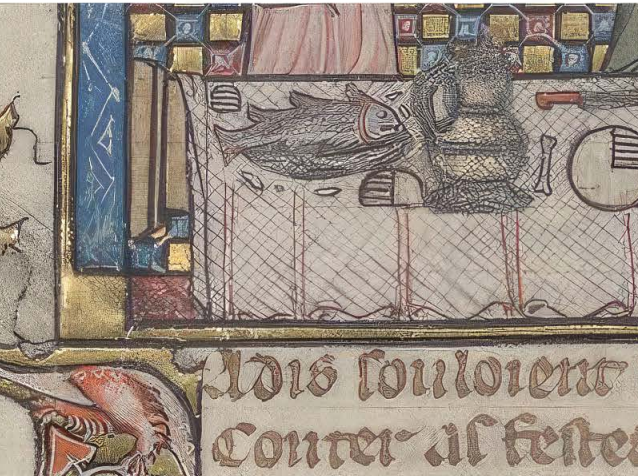 Adis souloient
Conter as feste